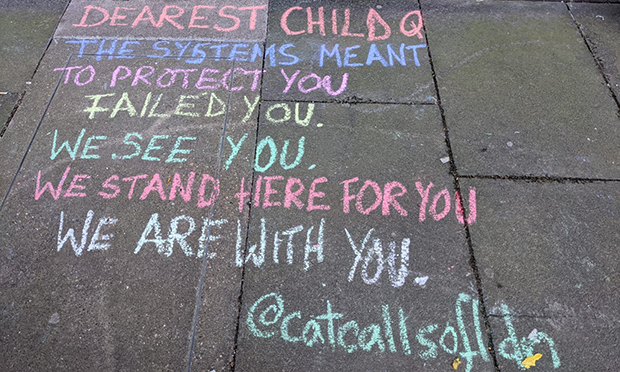 DEAREST CHILD Q
THE SYSTEMS MEANT
TO PROTECT YOU
FAILED YOU.
WE SEE YOU.
WE STAND HERE FOR YOU
WE ARE WITH YOU.
@catcallsofldn